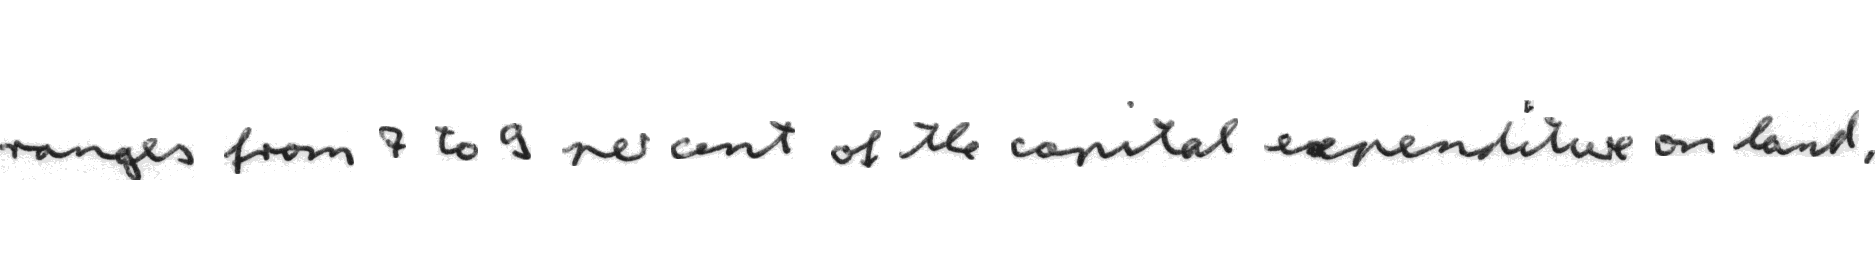 ranges from 7 to 9 per cent of the capital expenditure on land,